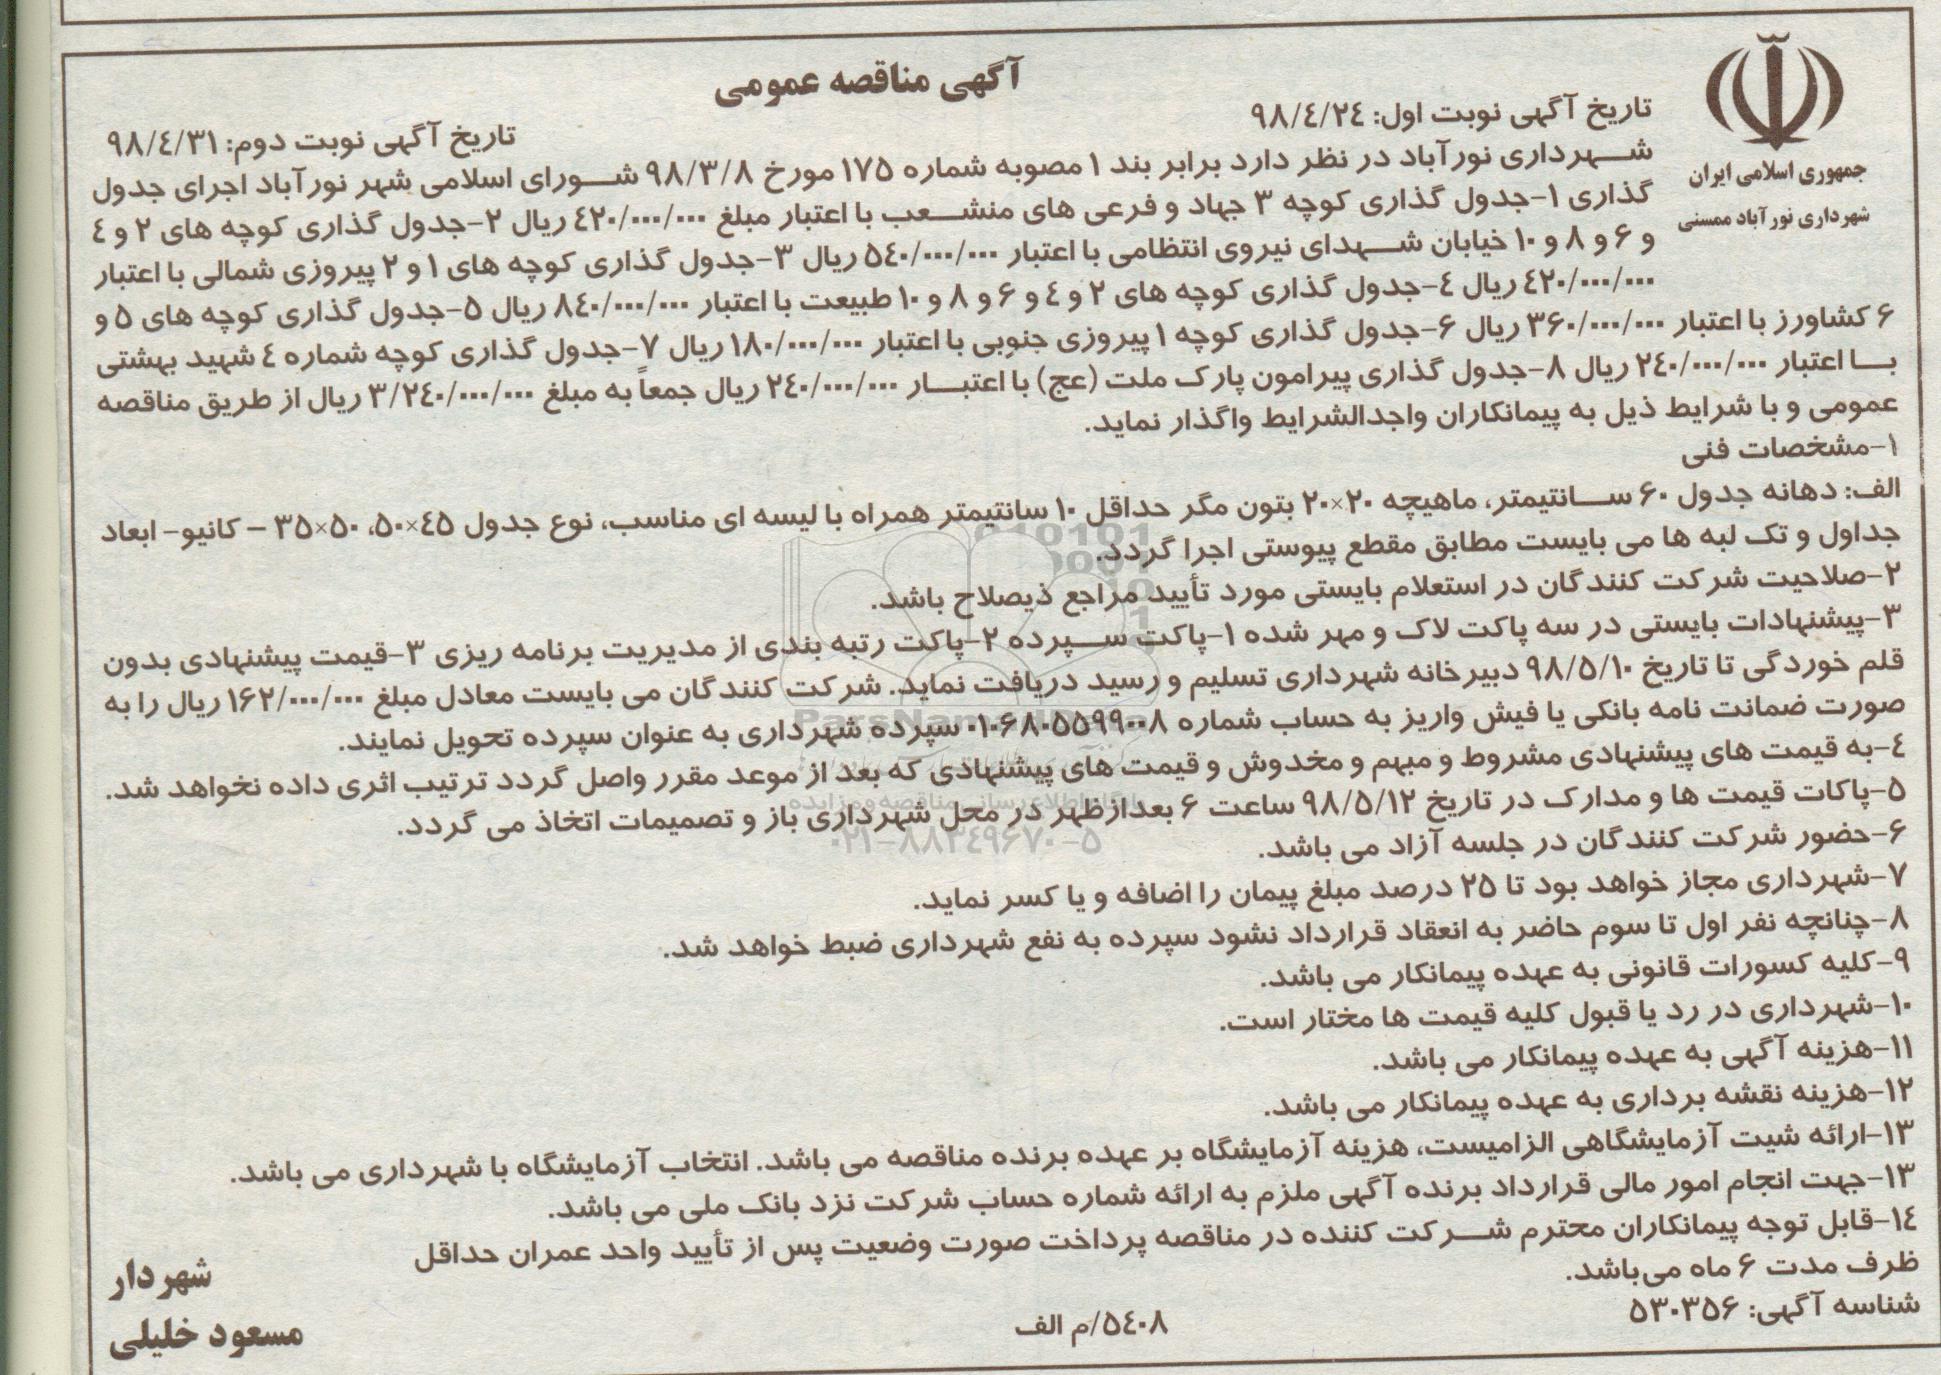 آگهی مناقصه عمومی
جمهوری اسلامی ایران
شهرداری نورآباد ممسنی
تاریخ آگهی نوبت اول: ۹۸/٤/۲٤
تاریخ آگهی نوبت دوم: ۹۸/٤/۳۱
شهرداری نورآباد در نظر دارد برابر بند ۱ مصوبه شماره ۱۷۵ مورخ ۹۸/۳/۸ شورای اسلامی شهر نورآباد اجرای جدول
گذاری ۱-جدول گذاری کوچه ۳ جهاد و فرعی های منشعب با اعتبار مبلغ ٤۲۰/۰۰۰/۰۰۰ ریال ۲-جدول گذاری کوچه های ۲ و ٤
و ۶ و ۸ و ۱۰ خیابان شهدای نیروی انتظامی با اعتبار ۵٤۰/۰۰۰/۰۰۰ ریال ۳-جدول گذاری کوچه های ۱ و ۲ پیروزی شمالی با اعتبار
٤۲۰/۰۰۰/۰۰۰ ریال ٤-جدول گذاری کوچه های ۲ و ٤ و ۶ و ۸ و ۱۰ طبیعت با اعتبار ۸٤۰/۰۰۰/۰۰۰ ریال ۵-جدول گذاری کوچه های ۵ و
۶ کشاورز با اعتبار ۳۶۰/۰۰۰/۰۰۰ ریال ۶-جدول گذاری کوچه ۱ پیروزی جنوبی با اعتبار ۱۸۰/۰۰۰/۰۰۰ ریال ۷-جدول گذاری کوچه شماره ٤ شهید بهشتی
با اعتبار ۲٤۰/۰۰۰/۰۰۰ ریال ۸-جدول گذاری پیرامون پارک ملت (عج) با اعتبار ۲٤۰/۰۰۰/۰۰۰ ریال جمعاً به مبلغ ۳/۲٤۰/۰۰۰/۰۰۰ ریال از طریق مناقصه
عمومی و با شرایط ذیل به پیمانکاران واجدالشرایط واگذار نماید.
۱-مشخصات فنی
الف: دهانه جدول ۶۰ سانتیمتر، ماهیچه ۲۰×۲۰ بتون مگر حداقل ۱۰ سانتیمتر همراه با لیسه ای مناسب، نوع جدول ٤۵×۵۰، ۵۰×۳۵ – کانیو- ابعاد
جداول و تک لبه ها می بایست مطابق مقطع پیوستی اجرا گردد.
۲-صلاحیت شرکت کنندگان در استعلام بایستی مورد تأیید مراجع ذیصلاح باشد.
۳-پیشنهادات بایستی در سه پاکت لاک و مهر شده ۱-پاکت سپرده ۲-پاکت رتبه بندی از مدیریت برنامه ریزی ۳-قیمت پیشنهادی بدون
قلم خوردگی تا تاریخ ۹۸/۵/۱۰ دبیرخانه شهرداری تسلیم و رسید دریافت نماید. شرکت کنندگان می بایست معادل مبلغ ۱۶۲/۰۰۰/۰۰۰ ریال را به
صورت ضمانت نامه بانکی یا فیش واریز به حساب شماره ۰۱۰۶۸۰۵۵۹۹۰۰۸ سپرده شهرداری به عنوان سپرده تحویل نمایند.
٤-به قیمت های پیشنهادی مشروط و مبهم و مخدوش و قیمت های پیشنهادی که بعد از موعد مقرر واصل گردد ترتیب اثری داده نخواهد شد.
۵-پاکات قیمت ها و مدارک در تاریخ ۹۸/۵/۱۲ ساعت ۶ بعدازظهر در محل شهرداری باز و تصمیمات اتخاذ می گردد.
۰۲۱-۸۸۳٤۹۶۷۰-۵
۶-حضور شرکت کنندگان در جلسه آزاد می باشد.
۷-شهرداری مجاز خواهد بود تا ۲۵ درصد مبلغ پیمان را اضافه و یا کسر نماید.
۸-چنانچه نفر اول تا سوم حاضر به انعقاد قرارداد نشود سپرده به نفع شهرداری ضبط خواهد شد.
۹-کلیه کسورات قانونی به عهده پیمانکار می باشد.
۱۰-شهرداری در رد یا قبول کلیه قیمت ها مختار است.
۱۱-هزینه آگهی به عهده پیمانکار می باشد.
۱۲-هزینه نقشه برداری به عهده پیمانکار می باشد.
۱۳-ارائه شیت آزمایشگاهی الزامیست، هزینه آزمایشگاه بر عهده برنده مناقصه می باشد. انتخاب آزمایشگاه با شهرداری می باشد.
۱۳-جهت انجام امور مالی قرارداد برنده آگهی ملزم به ارائه شماره حساب شرکت نزد بانک ملی می باشد.
۱٤-قابل توجه پیمانکاران محترم شرکت کننده در مناقصه پرداخت صورت وضعیت پس از تأیید واحد عمران حداقل
ظرف مدت ۶ ماه می‌باشد.
شناسه آگهی: ۵۳۰۳۵۶
۵٤۰۸/م الف
شهردار
مسعود خلیلی